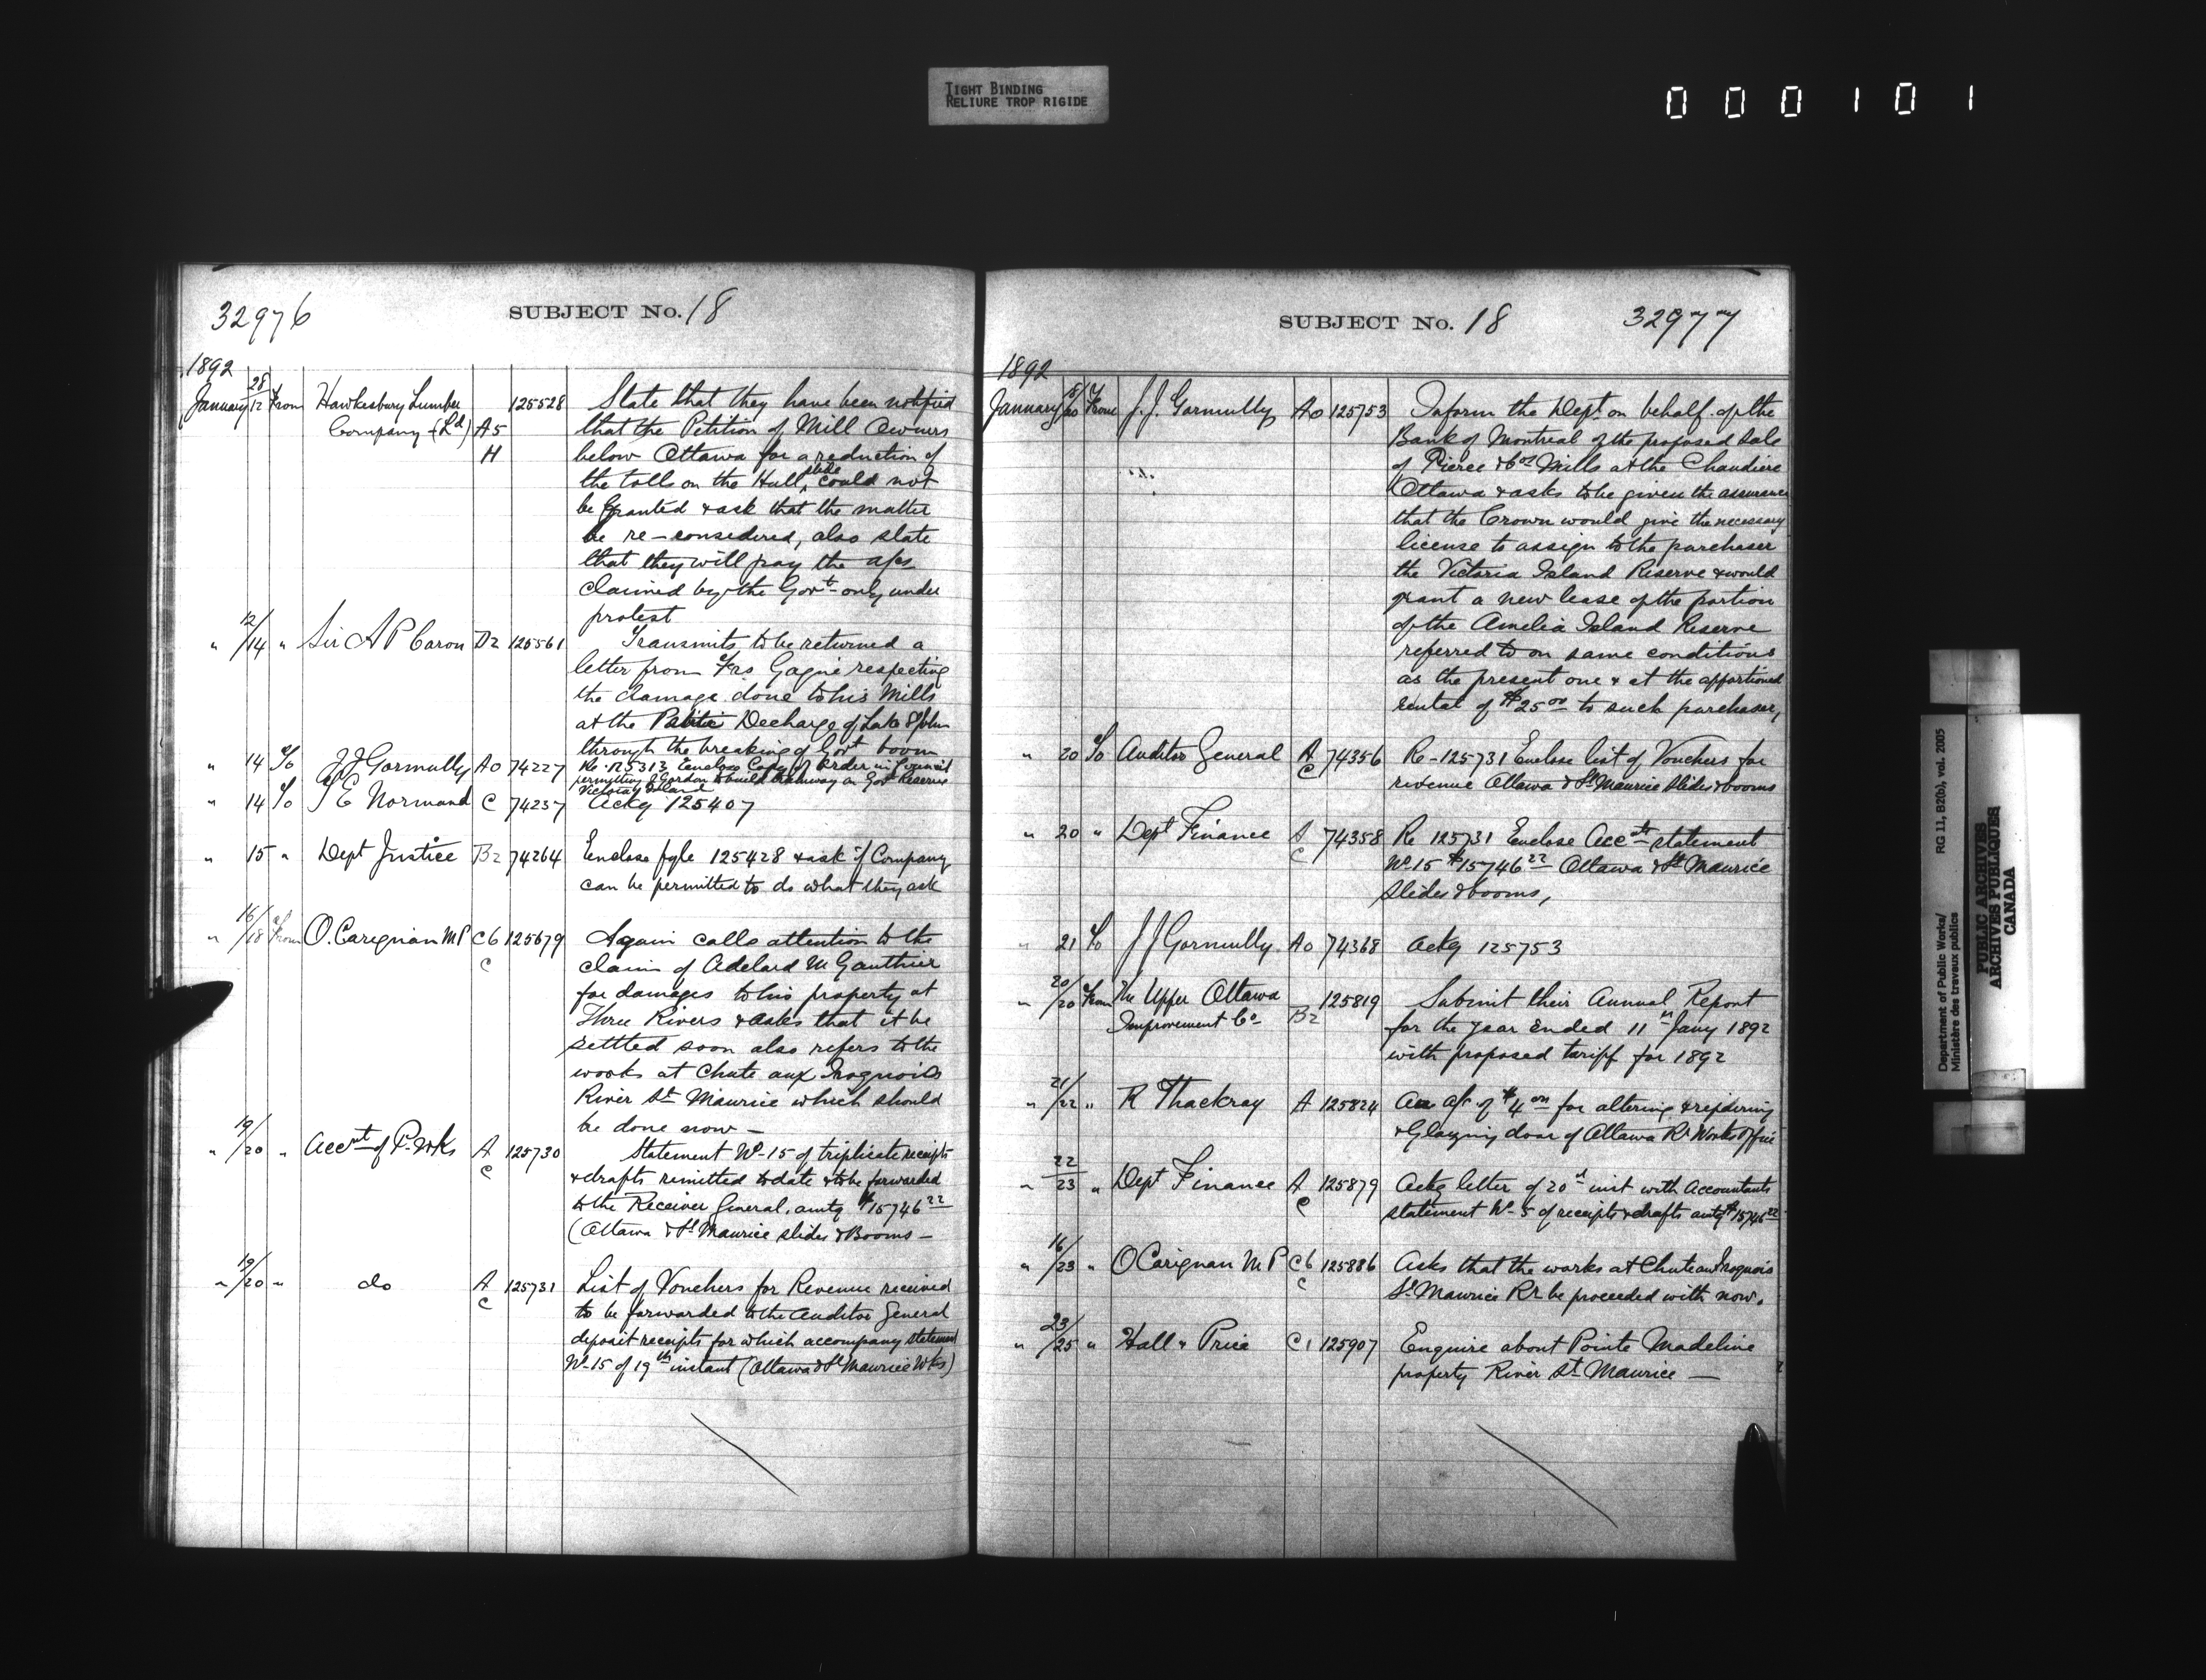 TIGHT BINDING
RELIURE TROP RIGIDE
000101
32976
SUBJECT No. 18
1892
January 28/12 From Hawkesbury Lumber 125528 State that they have been notified
Company (Ld) A5 that the Petition of Mill Owners
H below Ottawa for a reduction of
the tolls on the Hull slide could not
be granted & ask that the matter
be re-considered, also state
that they will pay the a/cs
claimed by the Govt only under
protest
" 12/14 " Sir A P Caron D2 125561 Transmits to be returned a
letter from Fas Gagné respecting
the damage done to his Mills
at the Decharge of Lake St John
through the breaking of Govt boom
" 14 To J J Gormully A0 74227 Re. 125313 Enclose Copy of Order in Council
permitting J Gordon to build tramway on Govt Reserve
Victoria Island
" 14 To E Normand C 74237 Ackg 125407
" 15 " Dept Justice B2 74264 Enclose fyle 125428 & ask if Company
can be permitted to do what they ask
" 16/18 From O. Carignan MP C6 125679 Again calls attention to the
C claim of Adelard M Gauthier
for damages to his property at
Three Rivers & asks that it be
settled soon also refers to the
works at Chute aux Iroquois
River St Maurice which should
be done now —
" 19/20 " Accnt of P. Wks A 125730 Statement No 15 of triplicate receipts
C & drafts remitted to date & to be forwarded
to the Receiver General. amtg $15746 22
(Ottawa & St Maurice slides & Booms —
" 19/20 " do A 125731 List of Vouchers for Revenue received
C to be forwarded to the Auditor General
deposit receipts for which accompany statement
No 15 of 19th instant (Ottawa & St Maurice Wks)
SUBJECT No. 18
32977
1892
January 18/20 From J. J. Gormully A0 125753 Inform the Dept on behalf of the
Bank of Montreal of the proposed sale
of Pierce & Cos Mills at the Chaudiere
Ottawa & asks to be given the assurance
that the Crown would give the necessary
license to assign to the purchaser
the Victoria Island Reserve & would
grant a new lease of the portion
of the Amelia Island Reserve
referred to on same conditions
as the present one & at the apportioned
rental of $25 00 to such purchaser,
" 20 To Auditor General A 74356 Re - 125731 Enclose list of Vouchers for
C revenue Ottawa & St Maurice slides & booms
" 20 " Dept Finance A 74358 Re 125731 Enclose Accnts statement
C No 15 $15746 22 Ottawa & St Maurice
slides & booms,
" 21 To J J Gormully. A0 74368 Ackg 125753
" 20/20 From The Upper Ottawa 125819 Submit their Annual Report
Improvement Co B2 for the year ended 11th Jany 1892
with proposed tariff for 1892
" 21/22 " R Thackray A 125824 An a/c of $4 00 for altering &
& Glazing door of Ottawa Rr Works Office
" 22/23 " Dept Finance A 125879 Ackg letter of 20th inst with Accountants
C statement No 5 of receipts & drafts amtg $15746 22
" 16/23 " O Carignan M P C6 125886 Asks that the works at Chute aux Iroquois
C St Maurice Rr be proceeded with now.
" 23/25 " Hall " Price C1 125907 Enquire about Pointe Madeline
property River St Maurice —
Department of Public Works/
Ministère des travaux publics
RG 11, B2(b), vol. 2005
PUBLIC ARCHIVES
ARCHIVES PUBLIQUES
CANADA